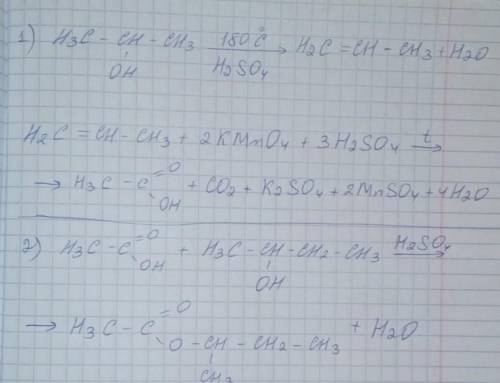 1) H3C - CH - CH3 180°C H2SO4 → H2C = CH - CH3 + H2O
OH
H2C = CH - CH3 + 2KMnO4 + 3H2SO4 t →
→ H3C - C = O - OH + CO2 + K2SO4 + 2MnSO4 + 4H2O
2) H3C - C = O - OH + H3C - CH - CH2 - CH3 H2SO4 →
OH
→ H3C - C = O - O - CH - CH2 - CH3 + H2O
CH3